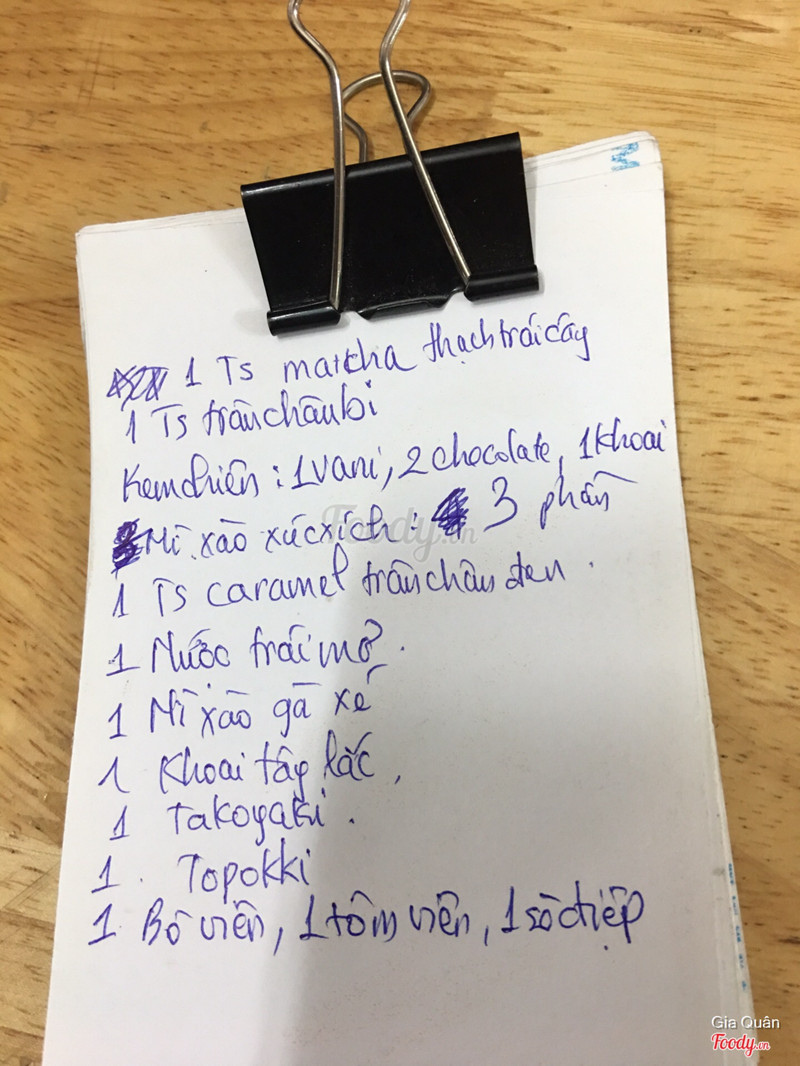 M
1 Ts matcha thạch trái cây
1 Ts trân châu bi
Kem chiên : 1 vani, 2 chocolate, 1 khoai
Mì xào xúc xích : 3 phần
1 Ts caramel trân châu đen .
1 Nước trái mơ .
1 Mì xào gà xé
1 Khoai tây lắc ,
1 Takoyaki .
1 . Topokki
1 Bò viên, 1 tôm viên, 1 sò điệp
Foody.vn
Gia Quân
Foody.vn